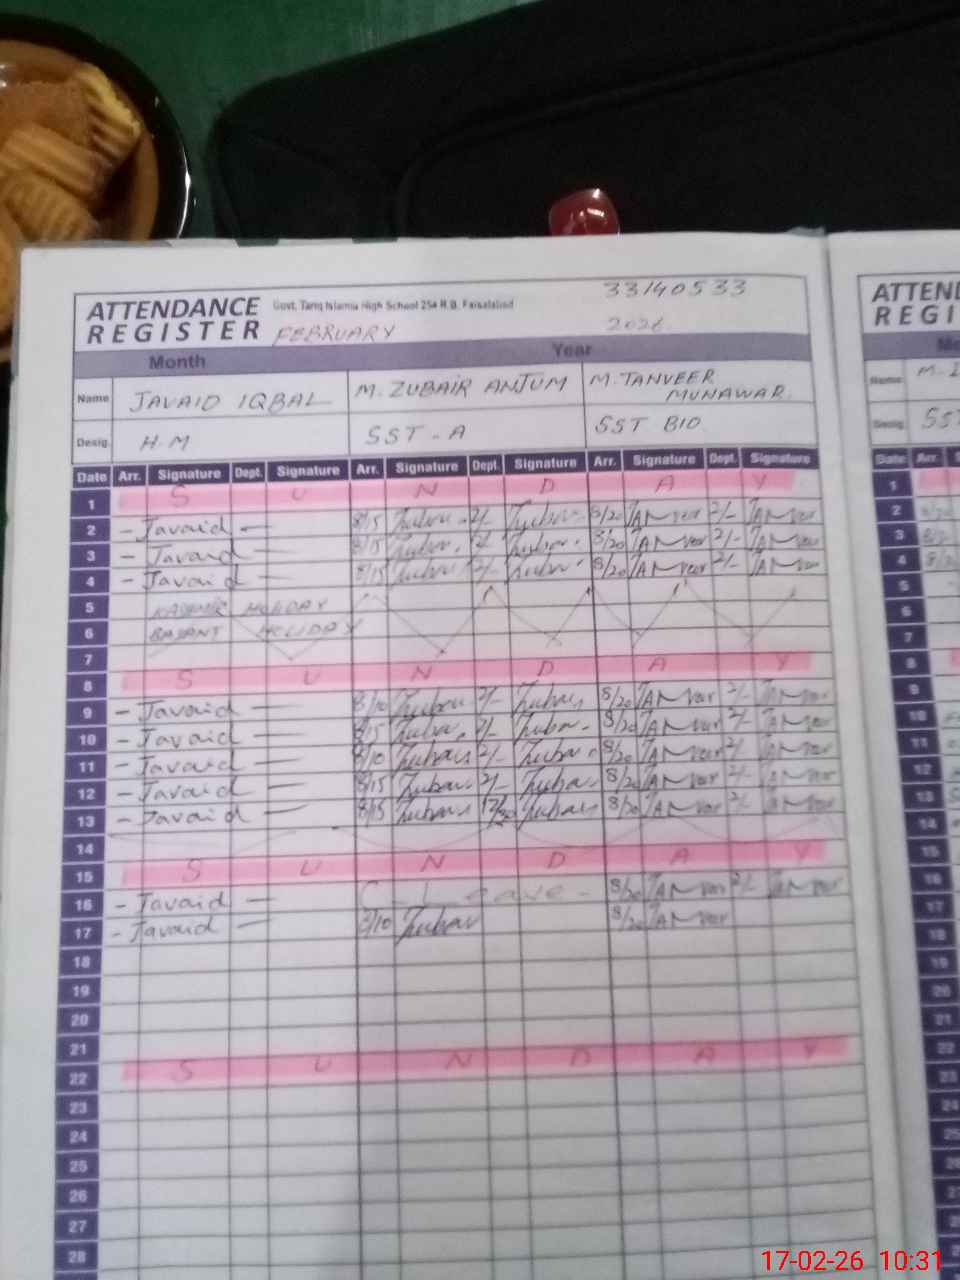 ATTENDANCE REGISTER
Govt. Tariq Islamia High School 254 R.B. Faisalabad
33140533
FEBRUARY 2026
Month Year
Name JAVAID IQBAL M. ZUBAIR ANJUM M. TANVEER MUNAWAR
Desig. H.M SST-A SST BIO
Date Arr. Signature Dept. Signature Arr. Signature Dept. Signature Arr. Signature Dept. Signature
1 S U N D A Y
2 - Javaid - 8/15 Zubair 2/- Zubair 8/20 TANveer 2/- TANveer
3 - Javaid - 8/15 Zubair 2/- Zubair 8/20 TANveer 2/- TANveer
4 - Javaid - 8/15 Zubair 2/- Zubair 8/20 TANveer 2/- TANveer
5 KASHMIR HOLIDAY
6 BASANT HOLIDAY
7
8 S U N D A Y
9 - Javaid - 8/10 Zubair 2/- Zubair 8/20 TANveer 2/- TANveer
10 - Javaid - 8/15 Zubair 2/- Zubair 8/20 TANveer 2/- TANveer
11 - Javaid - 8/10 Zubair 2/- Zubair 8/20 TANveer 2/- TANveer
12 - Javaid - 8/15 Zubair 2/- Zubair 8/20 TANveer 2/- TANveer
13 - Javaid - 8/15 Zubair 12/30 Zubair 8/20 TANveer 2/- TANveer
14
15 S U N D A Y
16 - Javaid - C. Leave - 8/20 TANveer 2/- TANveer
17 - Javaid - 8/10 Zubair 8/20 TANveer
18
19
20
21
22 S U N D A Y
23
24
25
26
27
28
ATTEND
REGI
Name M.
Desig. SST
Date Arr.
1
2 8/20
3
4
5
6
7
8
9
10
11
12
13
14
15
16
17
18
19
20
21
22
23
24
25
26
27
17-02-26 10:31